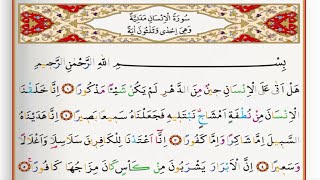 سُورَةُ الْاِنْسَانِ مَدَنِيَّةٌ
وَهِيَ اِحْدٰى وَثَلٰثُونَ اٰيَةً
بِسْــــــمِ اللّٰهِ الرَّحْمٰنِ الرَّح۪يمِ
هَلْ اَتٰى عَلَى الْاِنْسَانِ ح۪ينٌ مِنَ الدَّهْرِ لَمْ يَكُنْ شَيْـًٔا مَذْكُورًا ﴿١﴾ اِنَّا خَلَقْنَا
الْاِنْسَانَ مِنْ نُطْفَةٍ اَمْشَاجٍۗ نَبْتَل۪يهِ فَجَعَلْنَاهُ سَم۪يعًا بَص۪يرًا ﴿٢﴾ اِنَّا هَدَيْنَاهُ
السَّب۪يلَ اِمَّا شَاكِرًا وَاِمَّا كَفُورًا ﴿٣﴾ اِنَّٓا اَعْتَدْنَا لِلْكَافِر۪ينَ سَلَاسِلَا۬ وَاَغْلَالًا
وَسَع۪يرًا ﴿٤﴾ اِنَّ الْاَبْرَارَ يَشْرَبُونَ مِنْ كَأْسٍ كَانَ مِزَاجُهَا كَافُورًاۚ ﴿٥﴾